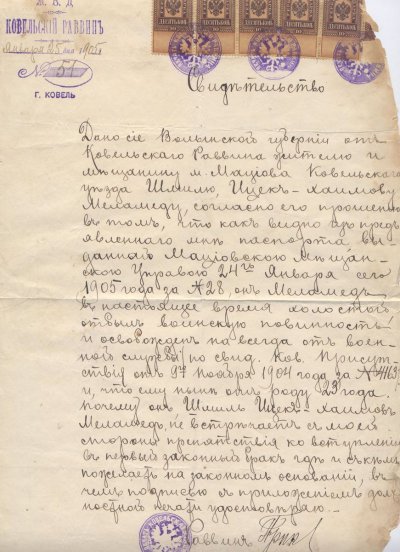 М. В. Д.
КОВЕЛЬСКІЙ РАВВИНЪ
Января 25 дня 1905 г.
№ 51
Г. КОВЕЛЬ
ДЕСЯТЬ КОП. ДЕСЯТЬ КОП. ДЕСЯТЬ КОП. ДЕСЯТЬ КОП. ДЕСЯТЬ КОП.
Свидѣтельство
Дано сіе Волынской губерніи отъ
Ковельскаго Раввина жителю и
мѣщанину м. Маціова Ковельскаго
уѣзда Шмилю, Ицекъ-Хаимову
Меламеду, согласно его прошенію
въ томъ, что какъ видно изъ предъ
явленнаго мнѣ паспорта, вы-
даннаго Маціовскою Мѣщан-
скою Управою 24го Января сего
1905 года за № 28, онъ Меламедъ
въ настоящее время холостой
отбылъ воинскую повинность
и освобожденъ навсегда отъ воен-
ной службы по свид. Ков. Присут-
ствія отъ 9го Ноября 1904 года за №
и, что ему нынѣ отъ роду 23 года.
Почему онъ Шмиль Ицекъ-Хаимовъ
Меламедъ, не встрѣчаетъ съ моей
стороны препятствія ко вступленію
въ первый законный бракъ гдѣ и съ кѣмъ
пожелаетъ на законномъ основаніи, въ
чемъ подписью съ приложеніемъ долж-
ностной печати удостовѣряю.
Раввинъ